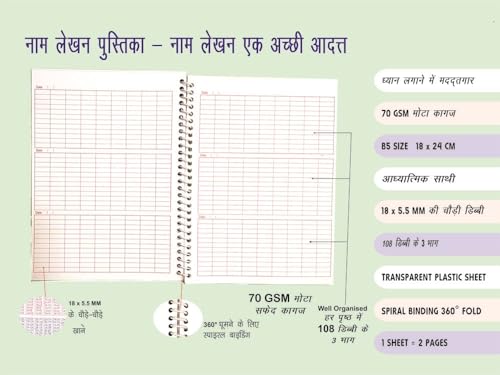 नाम लेखन पुस्तिका – नाम लेखन एक अच्छी आदत
ध्यान लगाने में मददतगार
70 GSM मोटा कागज
B5 SIZE 18 x 24 CM
आध्यात्मिक साथी
18 x 5.5 MM की चौड़ी डिब्बी
108 डिब्बी के 3 भाग
TRANSPARENT PLASTIC SHEET
SPIRAL BINDING 360° FOLD
1 SHEET = 2 PAGES
18 x 5.5 MM
के चौड़े-चौड़े
खाने
360° घूमने के लिए
स्पाइरल बाइंडिंग
70 GSM मोटा
सफेद कागज
Well Organised
हर पृष्ठ में
108 डिब्बी के
3 भाग